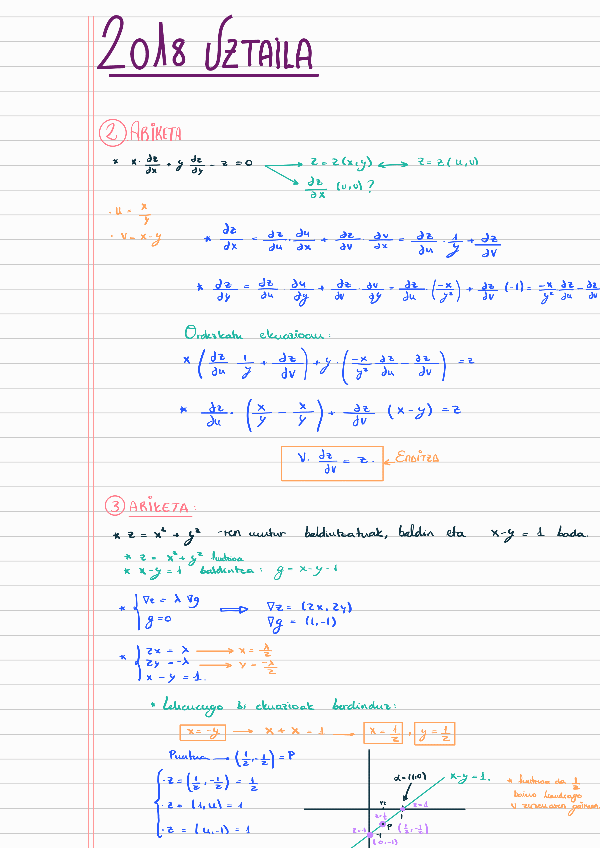 2018 UZTAILA
② ARIKETA
* x · ∂z/∂x + y ∂z/∂y - z = 0 → z = z(x,y) ↔ z = z(u,v)
→ ∂z/∂x (u,v)?
· u = x/y
· v = x-y
* ∂z/∂x = ∂z/∂u · ∂u/∂x + ∂z/∂v · ∂v/∂x = ∂z/∂u · 1/y + ∂z/∂v
* ∂z/∂y = ∂z/∂u · ∂u/∂y + ∂z/∂v · ∂v/∂y = ∂z/∂u · (-x/y²) + ∂z/∂v (-1) = -x/y² ∂z/∂u - ∂z/∂v
Ordezkatu ekuazioan:
x (∂z/∂u 1/y + ∂z/∂v) + y · (-x/y² ∂z/∂u - ∂z/∂v) = z
* ∂z/∂u · (x/y - x/y) + ∂z/∂v (x-y) = z
v · ∂z/∂v = z. ← EMAITZA
③ ARIKETA:
* z = x² + y² -ren mutur baldintzatuak, baldin eta x-y = 1 bada.
* z = x² + y² funtzioa
* x-y = 1 baldintza: g = x-y-1
* { ∇z = λ ∇g ⇒ ∇z = (2x, 2y)
g = 0 ∇g = (1,-1)
* { 2x = λ → x = λ/2
2y = -λ → y = -λ/2
x - y = 1.
* Lehenengo bi ekuazioak berdinduz:
x = -y → x + x = 1 → x = 1/2, y = 1/2
Puntua → (1/2, -1/2) = P
{ · z = (1/2, -1/2) = 1/2
· z = (1,0) = 1
· z = (0,-1) = 1
α = (1,0)
x-y = 1.
z = 1
1
z = 1/2
P (1/2, -1/2)
z = 1
-1
(0,-1)
* funtzioa da 1/2